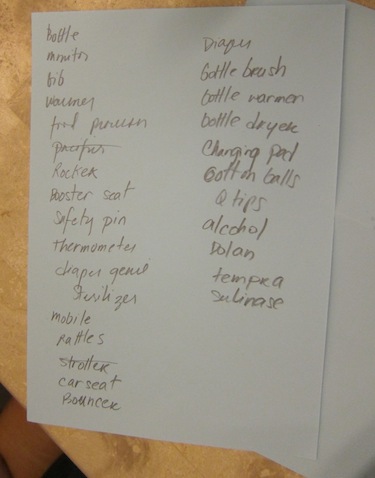 Bottle
monitor
bib
warmer
food processor
pacifier
Rocker
Booster seat
Safety pin
thermometer
diaper genie
Sterilizer
mobile
Rattles
stroller
car seat
Bouncer
Diaper
Bottle brush
bottle warmer
bottle dryer
Changing pad
Cotton balls
Q tips
alcohol
Dolan
tempra
Salinase